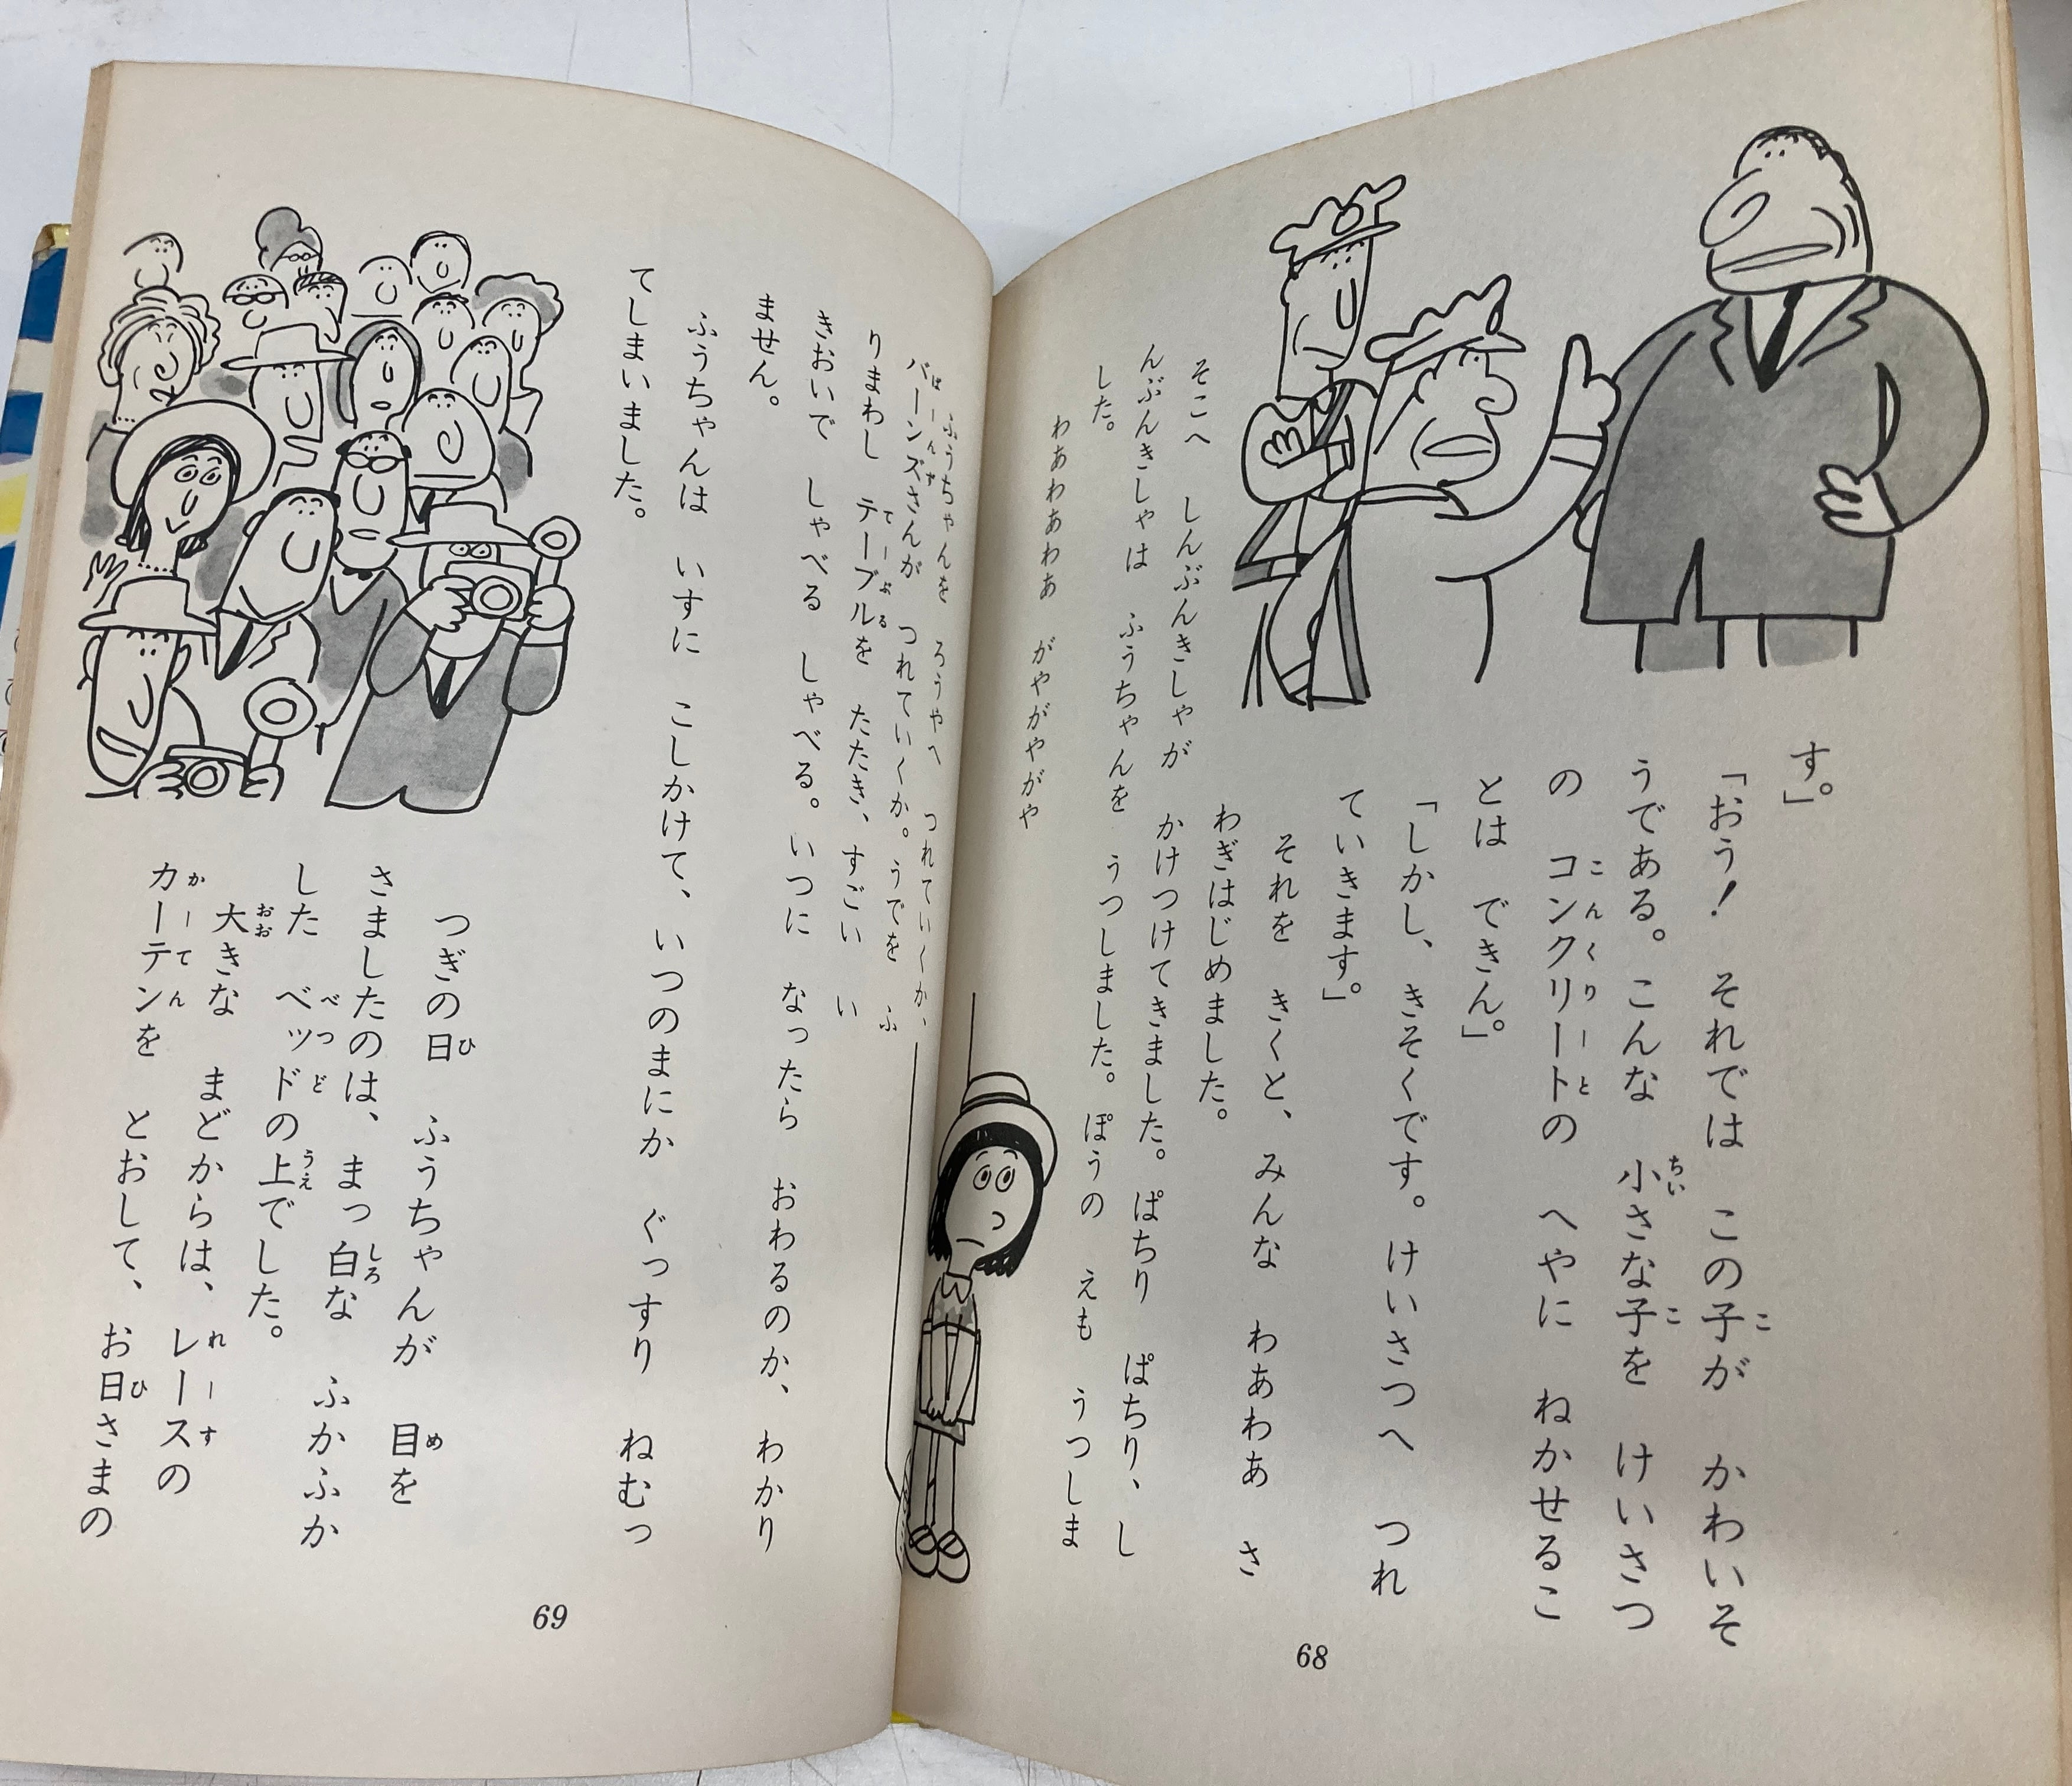 す。」
「おう！　それでは　この子が　かわいそ
うである。こんな　小さな子を　けいさつ
の　コンクリートの　へやに　ねかせるこ
とは　できん。」
「しかし、きそくです。けいさつへ　つれ
ていきます。」
それを　きくと、みんな　わあわあ　さ
わぎはじめました。
そこへ　しんぶんきしゃが　かけつけてきました。ぱちり　ぱちり、し
んぶんきしゃは　ふうちゃんを　うつしました。ぼうの　えも　うつしま
した。
わあわあわあ　がやがやがや
ふうちゃんを　ろうやへ　つれていくか、
バーンズさんが　つれていくか。うでを　ふ
りまわし　テーブルを　たたき、すごい　い
きおいで　しゃべる　しゃべる。いつに　なったら　おわるのか、わかり
ません。
ふうちゃんは　いすに　こしかけて、いつのまにか　ぐっすり　ねむっ
てしまいました。
つぎの日　ふうちゃんが　目を
さましたのは、まっ白な　ふかふか
した　ベッドの上でした。
大きな　まどからは、レースの
カーテンを　とおして、お日さまの
68
69